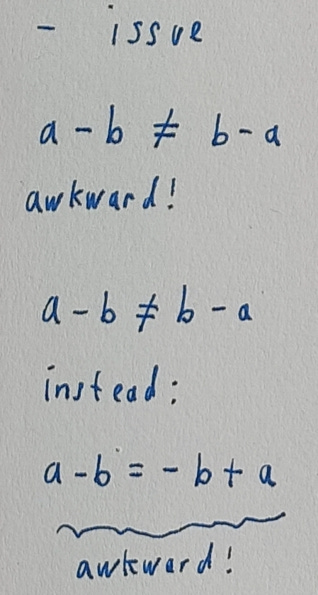 - issue
a - b ≠ b - a
awkward!
a - b ≠ b - a
instead:
a - b = - b + a
awkward!